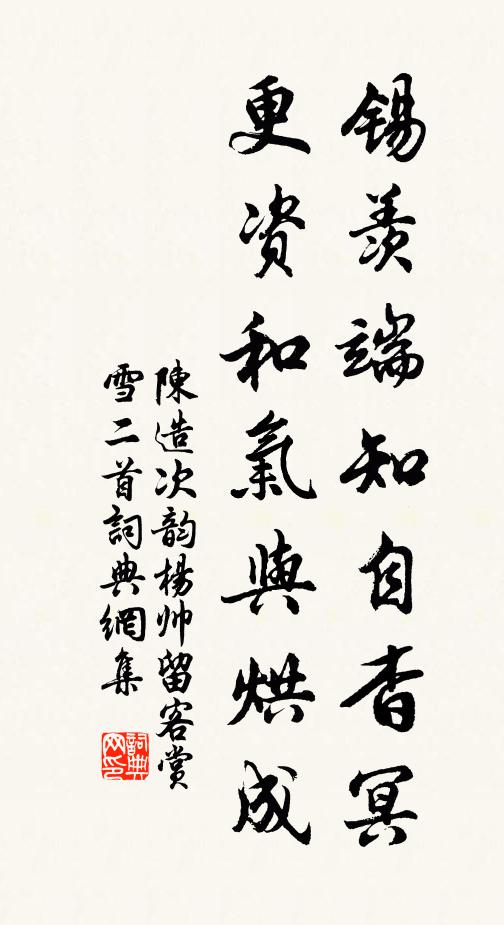 锡羨端知自杳冥
更资和氣與烘成
陳造次韵楊帅留客赏
雪二首詞典網集
詞典
网印